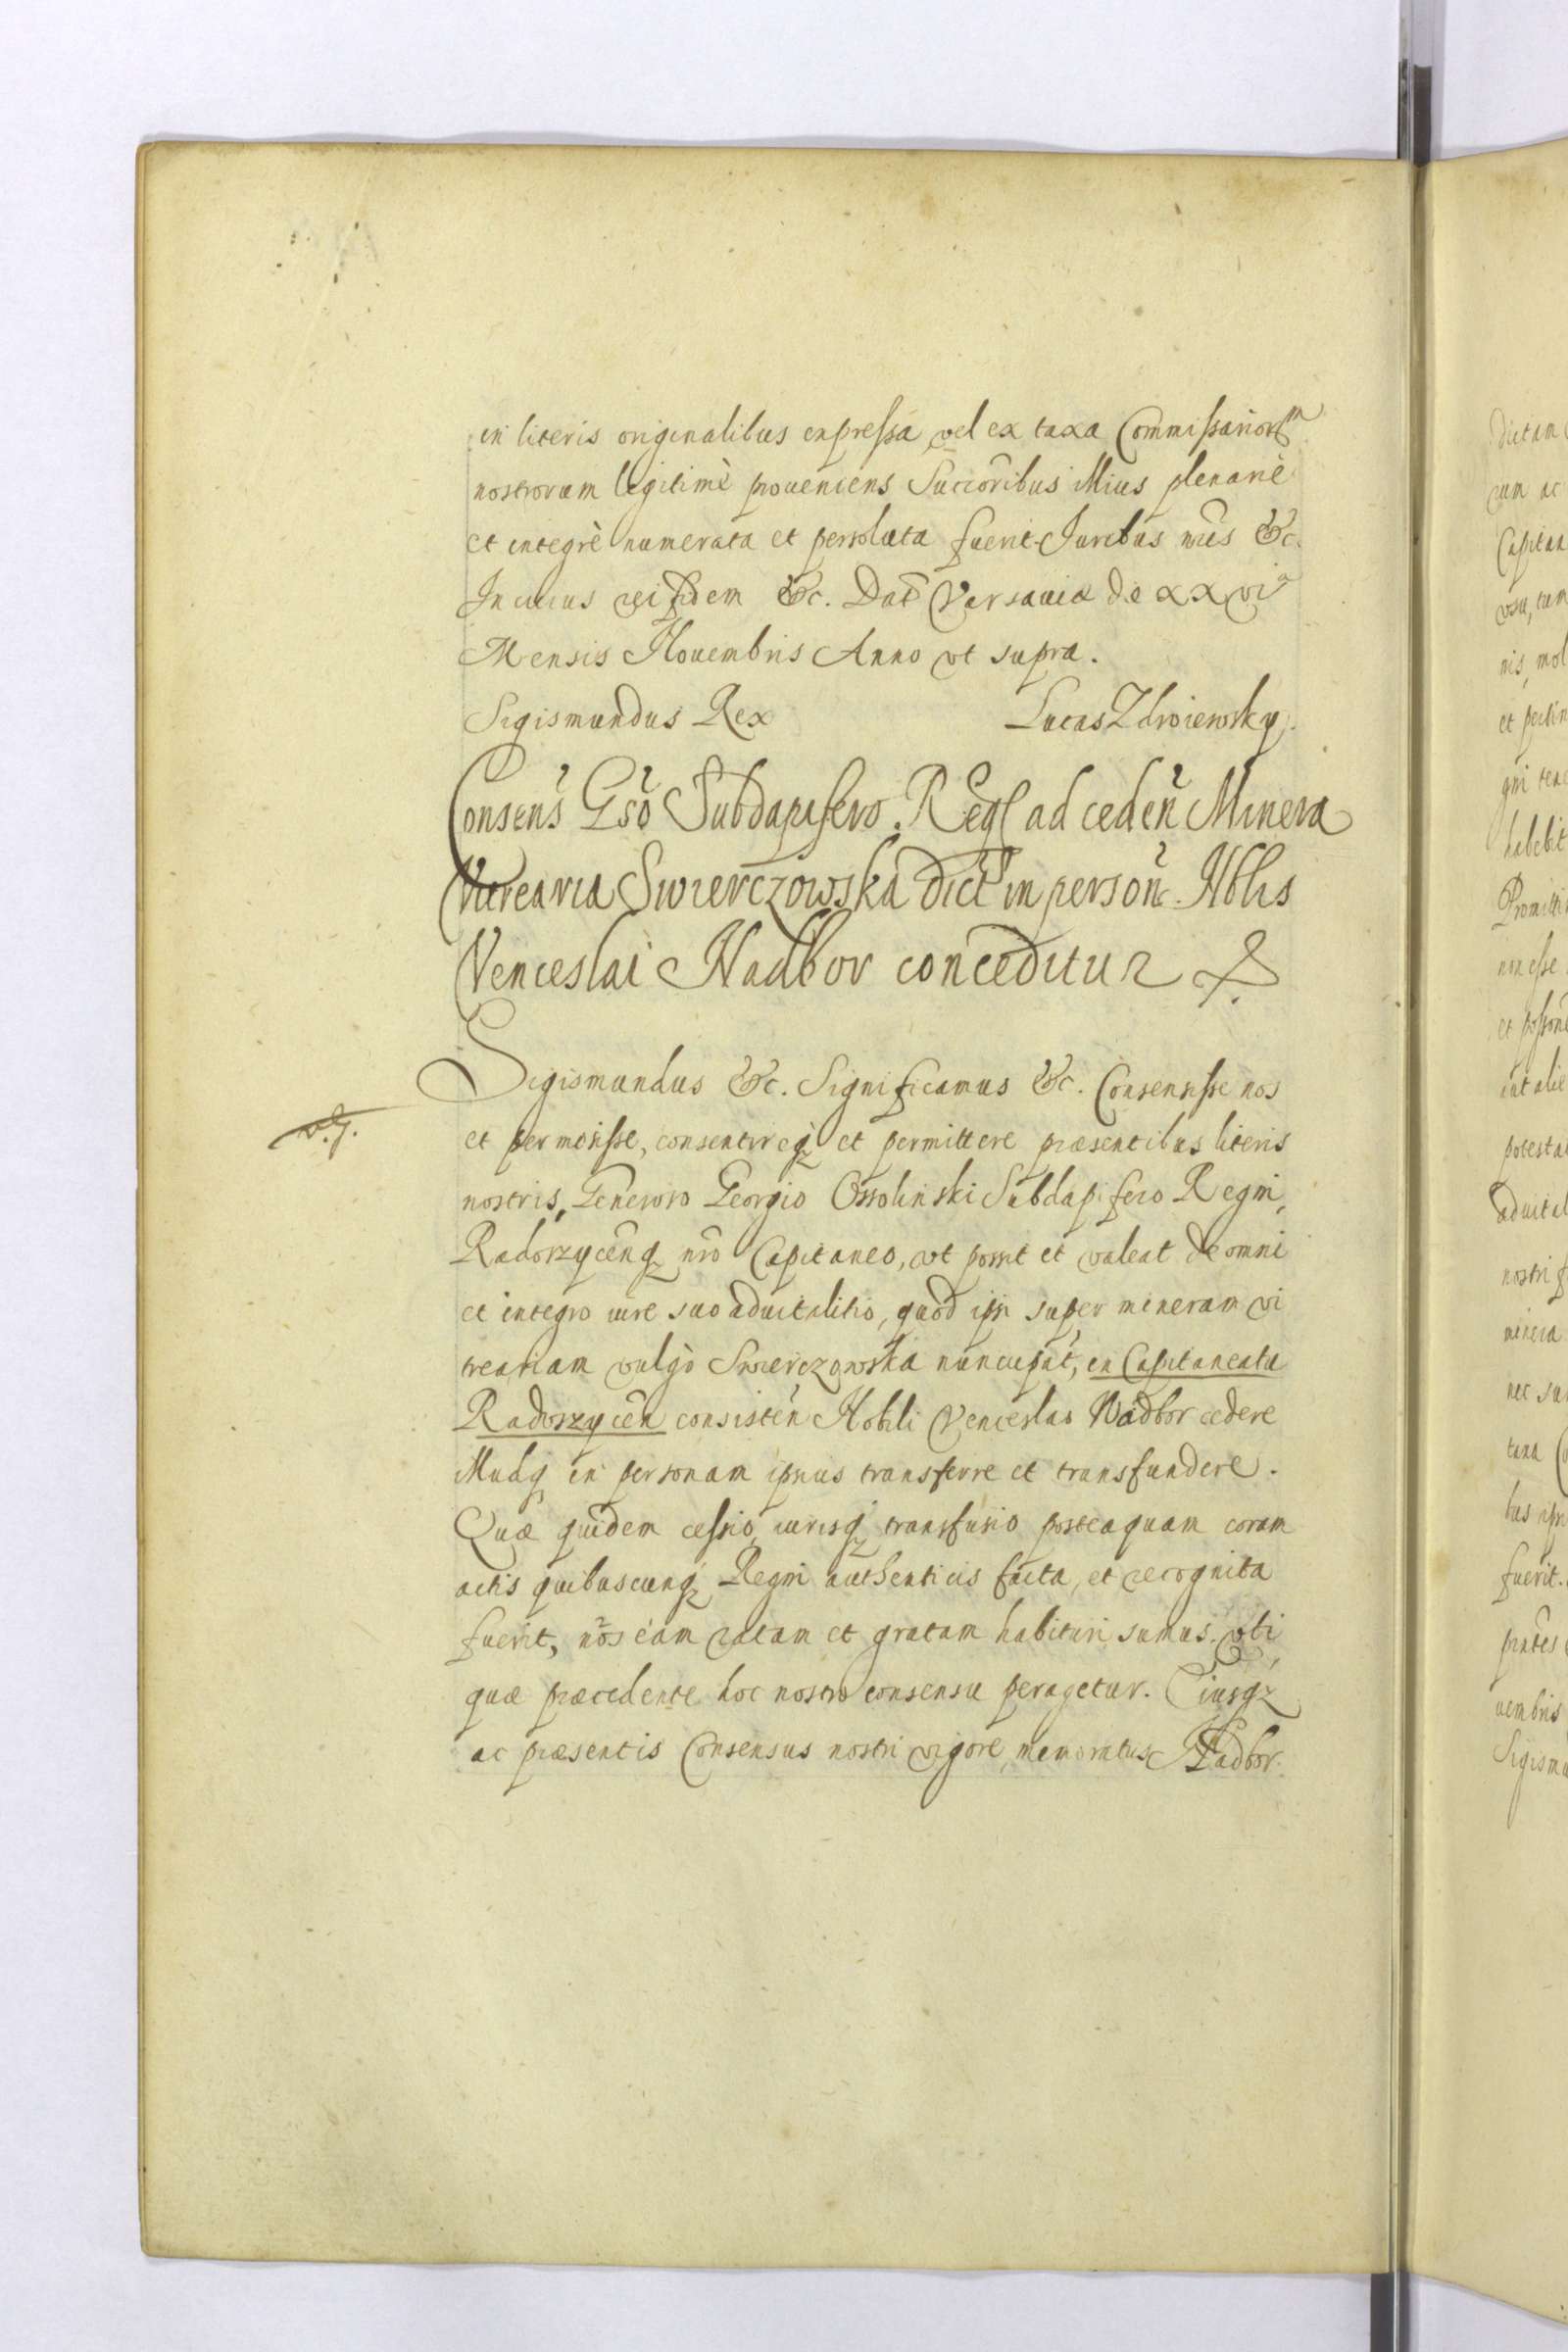 in literis originalibus expressa, vel ex taxa Commissariorũ
nostrorum legitimè proueniens Succõribus illius plenariè
et integrè numerata et persoluta fuerit. Juribus nr̃is &c.
In cuius rei fidem &c. Dat̃ Varsauiæ die xxviª
Mensis Nouembris Anno vt supra.
Sigismundus Rex Lucas Zdroiewsky.
Consens̃ Gsõ Subdapifero Regī ad cedeñ Minera
Vitrearia Swierczowska dict̃ in persoñ Nblis
Venceslai Nadbor conceditur
Sigismundus &c. Significamus &c. Consensisse nos
v.g.
et permisisse, consentireq3 et permittere præsentibus literis
nostris, Generoso Georgio Ossolinski Subdapifero Regni,
Radoszyceñq3 nr̃o Capitaneo, vt possit et valeat de omni
et integro iure suo aduitalitio, quod ipsi super mineram vi
treariam vulgò Swierczowska nuncupat̃, in Capitaneatu
Radoszyceñ consisteñ Nobili Venceslao Nadbor cedere
illudq3 in personam ipsius transferre et transfundere.
Quæ quidem cessio, iurisq3 transfusio posteaquam coram
actis quibuscunq3 Regni authenticis facta, et recognita
fuerit, nos eam ratam et gratam habituri sumus. vti
quæ præcedente hoc nostro consensu peragetur. Eiusq3
ac præsentis Consensus nostri vigore, memoratus Nadbor